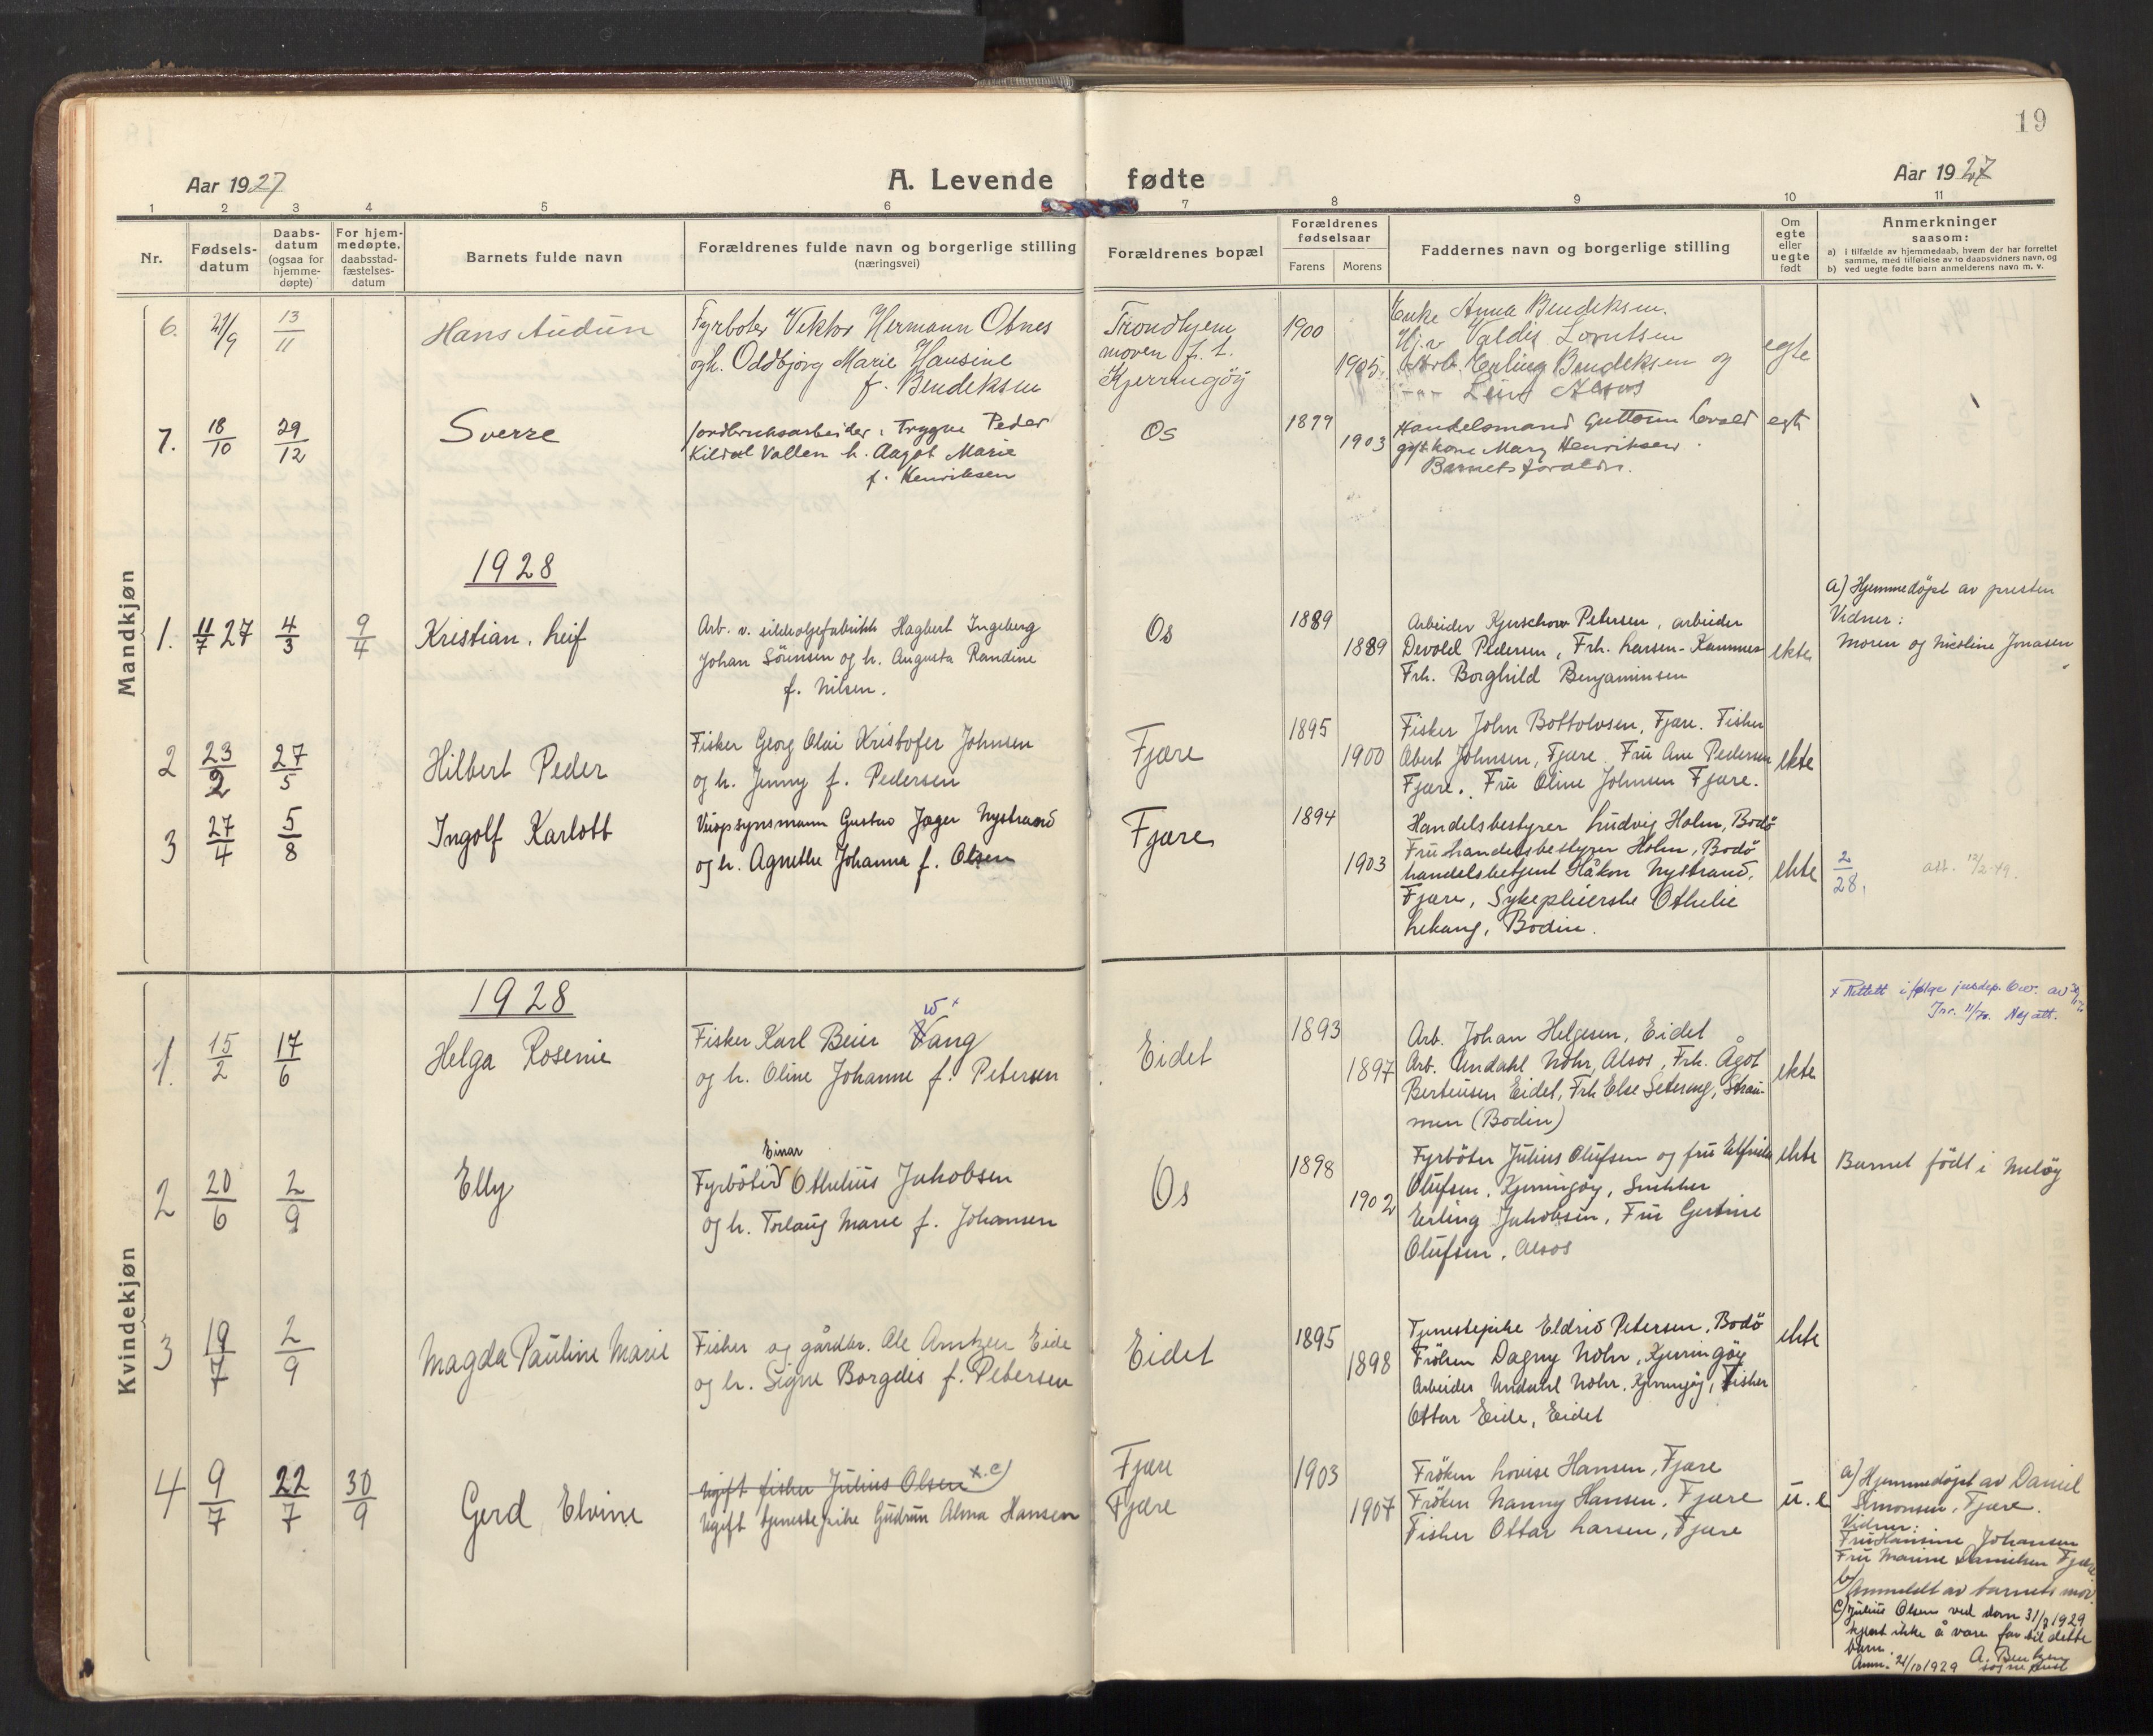 19
Aar 1927
A. Levende fødte
Aar 1927
1 2 3 4 5 6 7 8 9 10 11
Nr.
Fødsels-
datum
Daabs-
datum
(ogsaa for
hjemme-
døpte)
For hjem-
medøpte,
daabsstad-
fæstelses-
datum
Barnets fulde navn
Forældrenes fulde navn og borgerlige stilling
(næringsvei)
Forældrenes bopæl
Forældrenes
fødselsaar
Farens Morens
Faddernes navn og borgerlige stilling
Om
egte
eller
uegte
født
Anmerkninger
saasom:
a) i tilfælde av hjemmedaab, hvem der har forrettet
samme, med tilføielse av to daabsvidners navn, og
b) ved uegte fødte barn anmelderens navn m. v.
Mandkjøn
6. 21/9 13/11 Hans Audun
Fyrbøter Viktor Hermann Otnes
og h. Oddbjørg Marie Hansine
f. Bendiksen
Trondhjem
moren f. t.
Kjerringøy
1900
1905.
Enke Anna Bendiksen.
Valdis Lorntsen
Arb. Erling Bendiksen og
Alsos
egte
7. 18/10 29/12 Sverre
Jordbruksarbeider Trygve Peder
Kildal Vollen h. Aagot Marie
f. Henriksen
Os
1899
1903
Handelsmand Guttorm Løvold
gift kone Mary Henriksen.
Barnets foreldre.
egte
1928
1. 11/7 27 4/3 9/4 Kristian Leif
Arb. v. sildeoljefabrikk Hagbert Ingeberg
Johan Sørensen og h. Augusta Randine
f. Nilsen.
Os
1889
1889
Arbeider Kjerschow Petersen, arbeider
Devold Pedersen, Frk. Larsen-Kammer
Frk. Borghild Benjaminsen
ekte
a) Hjemmedøpt av presten
Vidner:
Moren og Nicoline Jonasen
2 23/2 27/5 Hilbert Peder
Fisker Georg Olai Kristofer Johnsen
og h. Jenny f. Pedersen
Fjære
1895
1900
Fisker John Bottolvsen, Fjære. Fisker
Obert Johnsen, Fjære. Fru Ane Pedersen
Fjære. Fru Oline Johnsen Fjære.
ekte
3 27/4 5/8 Ingolf Karlott
Veiopsynsmann Gustav Jæger Nystrand
og h. Agnethe Johanna f. Olsen
Fjære
1894
1903
Handelsbestyrer Ludvig Holm, Bodø
Fru handelsbestyrer Holm, Bodø
handelsbetjent Håkon Nystrand,
Fjære, Sykepleierske Othelie
Lekang, Bodin.
ekte
2/28.
att. 12/2-49.
Kvindekjøn
1928
w x
1. 15/2 17/6 Helga Rosenie
Fisker Karl Beier Vang
og h. Oline Johanne f. Petersen
Eidet
1893
1897
Arb. Johan Helgesen, Eidet
Arb. Undahl Nohr, Alsos, Frk. Ågot
Berteusen Eidet, Frk Else Setervg, Strau-
men (Bodin)
ekte
x Rettett ifølge jusdep. av
Jnr. 11/70. Ny att.
2 20/6 2/9 Elly
Einar
Fyrbøter Othelius Jakobsen
og h. Torlaug Marie f. Johansen
Os
1898
1902
Fyrbøter Julius Olufsen og fru Elfrida
Olufsen, Kjerringøy, Snekker
Erling Jakobsen, Fru Gertine
Olufsen, Alsos
ekte
Barnet født i Meløy
3 19/7 2/9 Magda Pauline Marie
Fisker og gårdbr. Ole Arntzen Eide
og h. Signe Borgdis f. Petersen
Eidet
1895
1898
Tjenestepike Eldrid Petersen, Bodø
Frøken Dagny Nohr, Kjerringøy
Arbeider Undahl Nohr, Kjerringøy, Fisker
Ottar Eide, Eidet
ekte
4 9/7 22/7 30/9 Gerd Elvine
Ugift fisker Julius Olsen x. c)
Ugift tjenestepike Gudrun Alma Hansen
Fjære
Fjære
1903
1907
Frøken Lovise Hansen, Fjære
Frøken Nanny Hansen, Fjære
Fisker Ottar Larsen, Fjære
u. e
a) Hjemmedøpt av Daniel
Simonsen, Fjære.
Vidner:
Fru Hansine Johansen
Fru Marine Danielsen Fjære
b) Anmeldt av barnets mor.
c) Julius Olsen ved dom 31/7 1929
kjent ikke å være far til dette
barn.
Anm. 21/10 1929 A. Bentzen
sogneprest